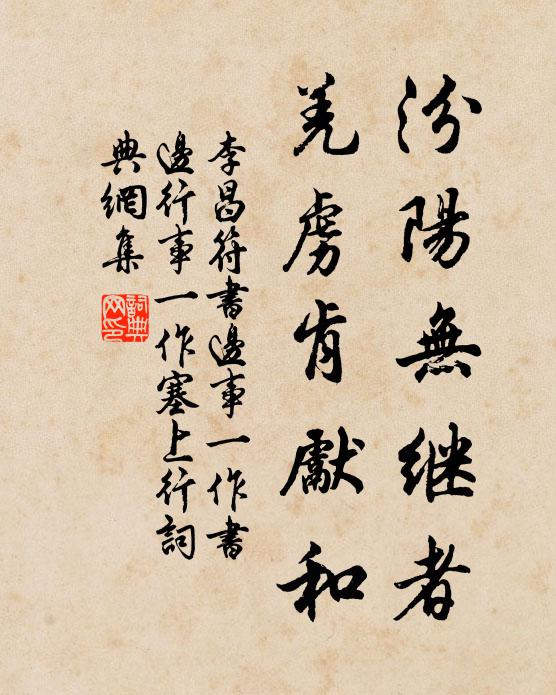 汾陽無继者
羌虜肯獻和
李昌符書邊事一作書
邊行事一作塞上行詞
典網集
詞典
网印